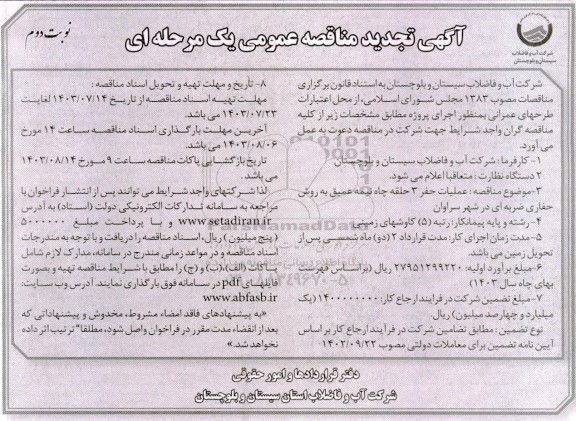 آگهی تجدید مناقصه عمومی یک مرحله ای
نوبت دوم
شرکت آب و فاضلاب
سیستان و بلوچستان
شرکت آب و فاضلاب سیستان و بلوچستان به استناد قانون برگزاری
مناقصات مصوب ۱۳۸۳ مجلس شورای اسلامی، از محل اعتبارات
طرحهای عمرانی بمنظور اجرای پروژه مطابق مشخصات زیر از کلیه
مناقصه گران واجد شرایط جهت شرکت در مناقصه دعوت به عمل
می آورد.
۱- کارفرما: شرکت آب و فاضلاب سیستان و بلوچستان
۲ دستگاه نظارت: متعاقبا اعلام می شود.
۳-موضوع مناقصه: عملیات حفر ۳ حلقه چاه نیمه عمیق به روش
حفاری ضربه ای در شهر سراوان
۴- رشته و پایه پیمانکار: رتبه (۵) کاوشهای زمینی
۵-مدت زمان اجرای کار: مدت قرارداد ۲ (دو) ماه شمسی پس از
تحویل زمین می باشد.
۶-مبلغ برآورد اولیه: ۲۷۹۵۱۲۹۹۲۲۰ ریال (براساس فهرست
بهای چاه سال ۱۴۰۳)
۷-مبلغ تضمین شرکت در فرایند ارجاع کار: ۱۴۰۰۰۰۰۰۰۰ (یک
میلیارد و چهارصد میلیون) ریال.
نوع تضمین: مطابق تضامین شرکت در فرآیند ارجاع کار بر اساس
آیین نامه تضمین برای معاملات دولتی مصوب ۱۴۰۲/۰۹/۲۲
۸- تأریخ و مهلت تهیه و تحویل اسناد مناقصه:
مهلت تهیه اسناد مناقصه از تاریخ ۱۴۰۳/۰۷/۱۴ لغایت
۱۴۰۳/۰۷/۲۳ می باشد.
آخرین مهلت بارگذاری اسناد مناقصه ساعت ۱۴ مورخ
۱۴۰۳/۰۸/۰۶ می باشد.
تاریخ بازگشایی پاکات مناقصه ساعت ۹ مورخ ۱۴۰۳/۰۸/۱۴
می باشد.
لذا شرکتهای واجد شرایط می توانند پس از انتشار فراخوان با
مراجعه به سامانه تدارکات الکترونیکی دولت (ستاد) به آدرس
www.setadiran.ir و با پرداخت مبلغ ۵۰۰۰۰۰۰
(پنج میلیون) ریال، اسناد مناقصه را دریافت و با توجه به مندرجات
اسناد مناقصه و در مواعد زمانی مندرج در سامانه، مدارک لازم شامل
پاکات (الف)، (ب) و (ج) را مطابق با شرایط مناقصه تهیه و بصورت
فایلهای pdf در سامانه فوق بارگذاری نمایند. آدرس وب سایت:
www.abfasb.ir
«به پیشنهادهای فاقد امضاء مشروط، مخدوش و پیشنهاداتی که
بعد از انقضاء مدت مقرر در فراخوان واصل شود، مطلقا" ترتیب اثر داده
نخواهد شد.»
دفتر قراردادها و امور حقوقی
شرکت آب و فاضلاب استان سیستان و بلوچستان